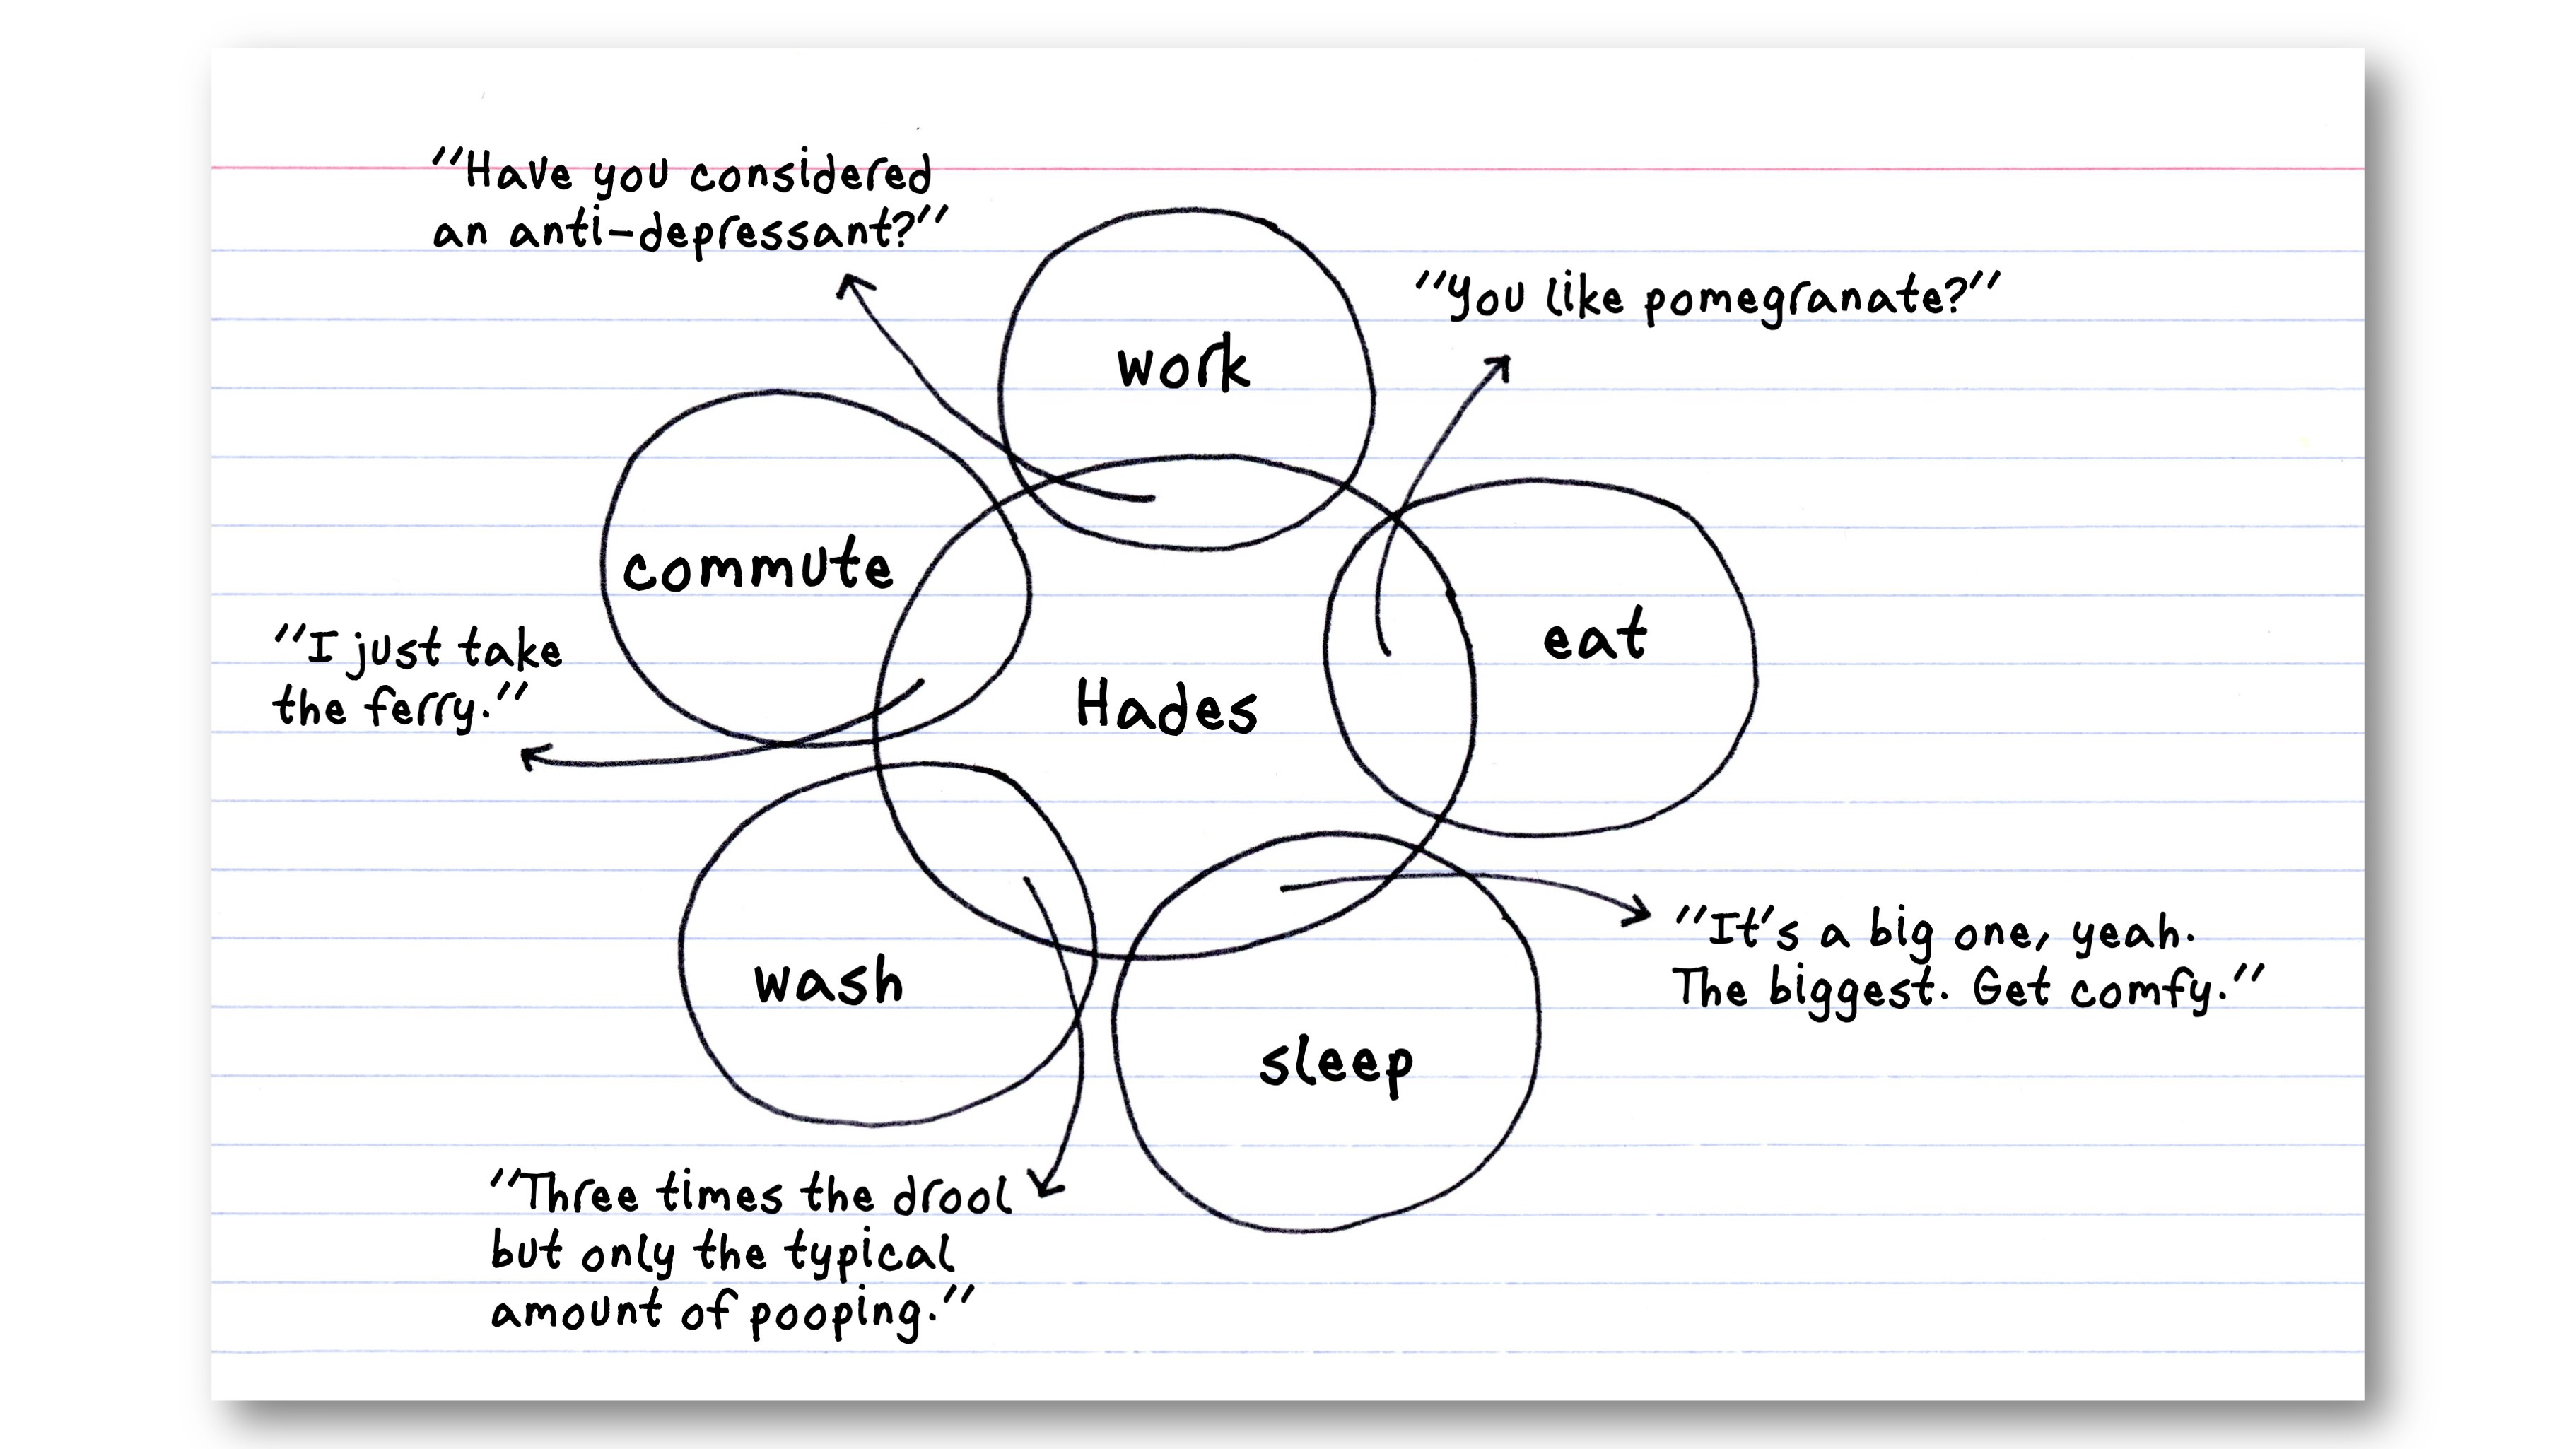 "Have you considered
an anti-depressant?"
"You like pomegranate?"
work
commute
eat
"I just take
the ferry."
Hades
"It's a big one, yeah.
The biggest. Get comfy."
wash
sleep
"Three times the drool
but only the typical
amount of pooping."